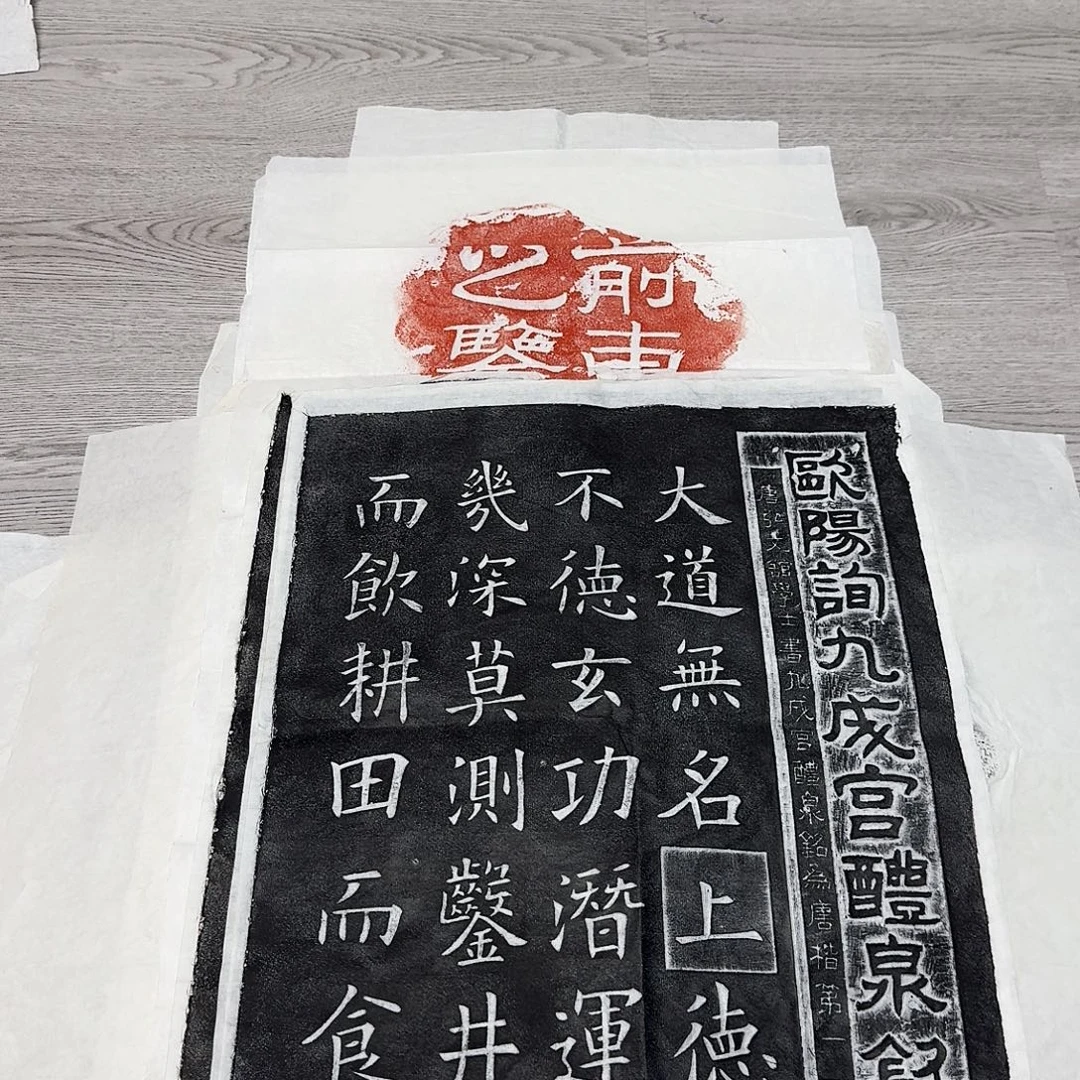 前車
之鑒
歐陽詢九成宮醴泉銘
唐弘文館學士書九成宮醴泉銘為唐楷第一
大道無名上德
不德玄功潛運
幾深莫測鑿井
而飲耕田而食